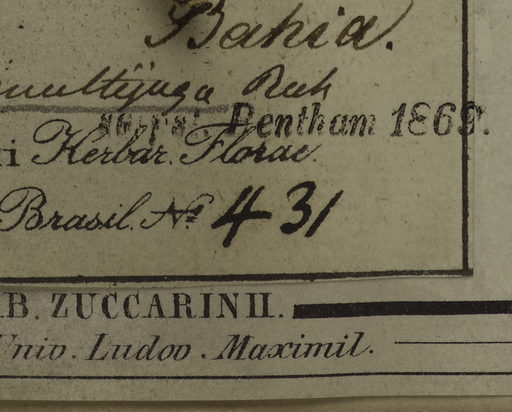 Bahia.
multijuga Rich
Bentham 1869.
ri Herbar. Florae
Brasil. No 431
B. ZUCCARINII.
Univ. Ludov. Maximil.